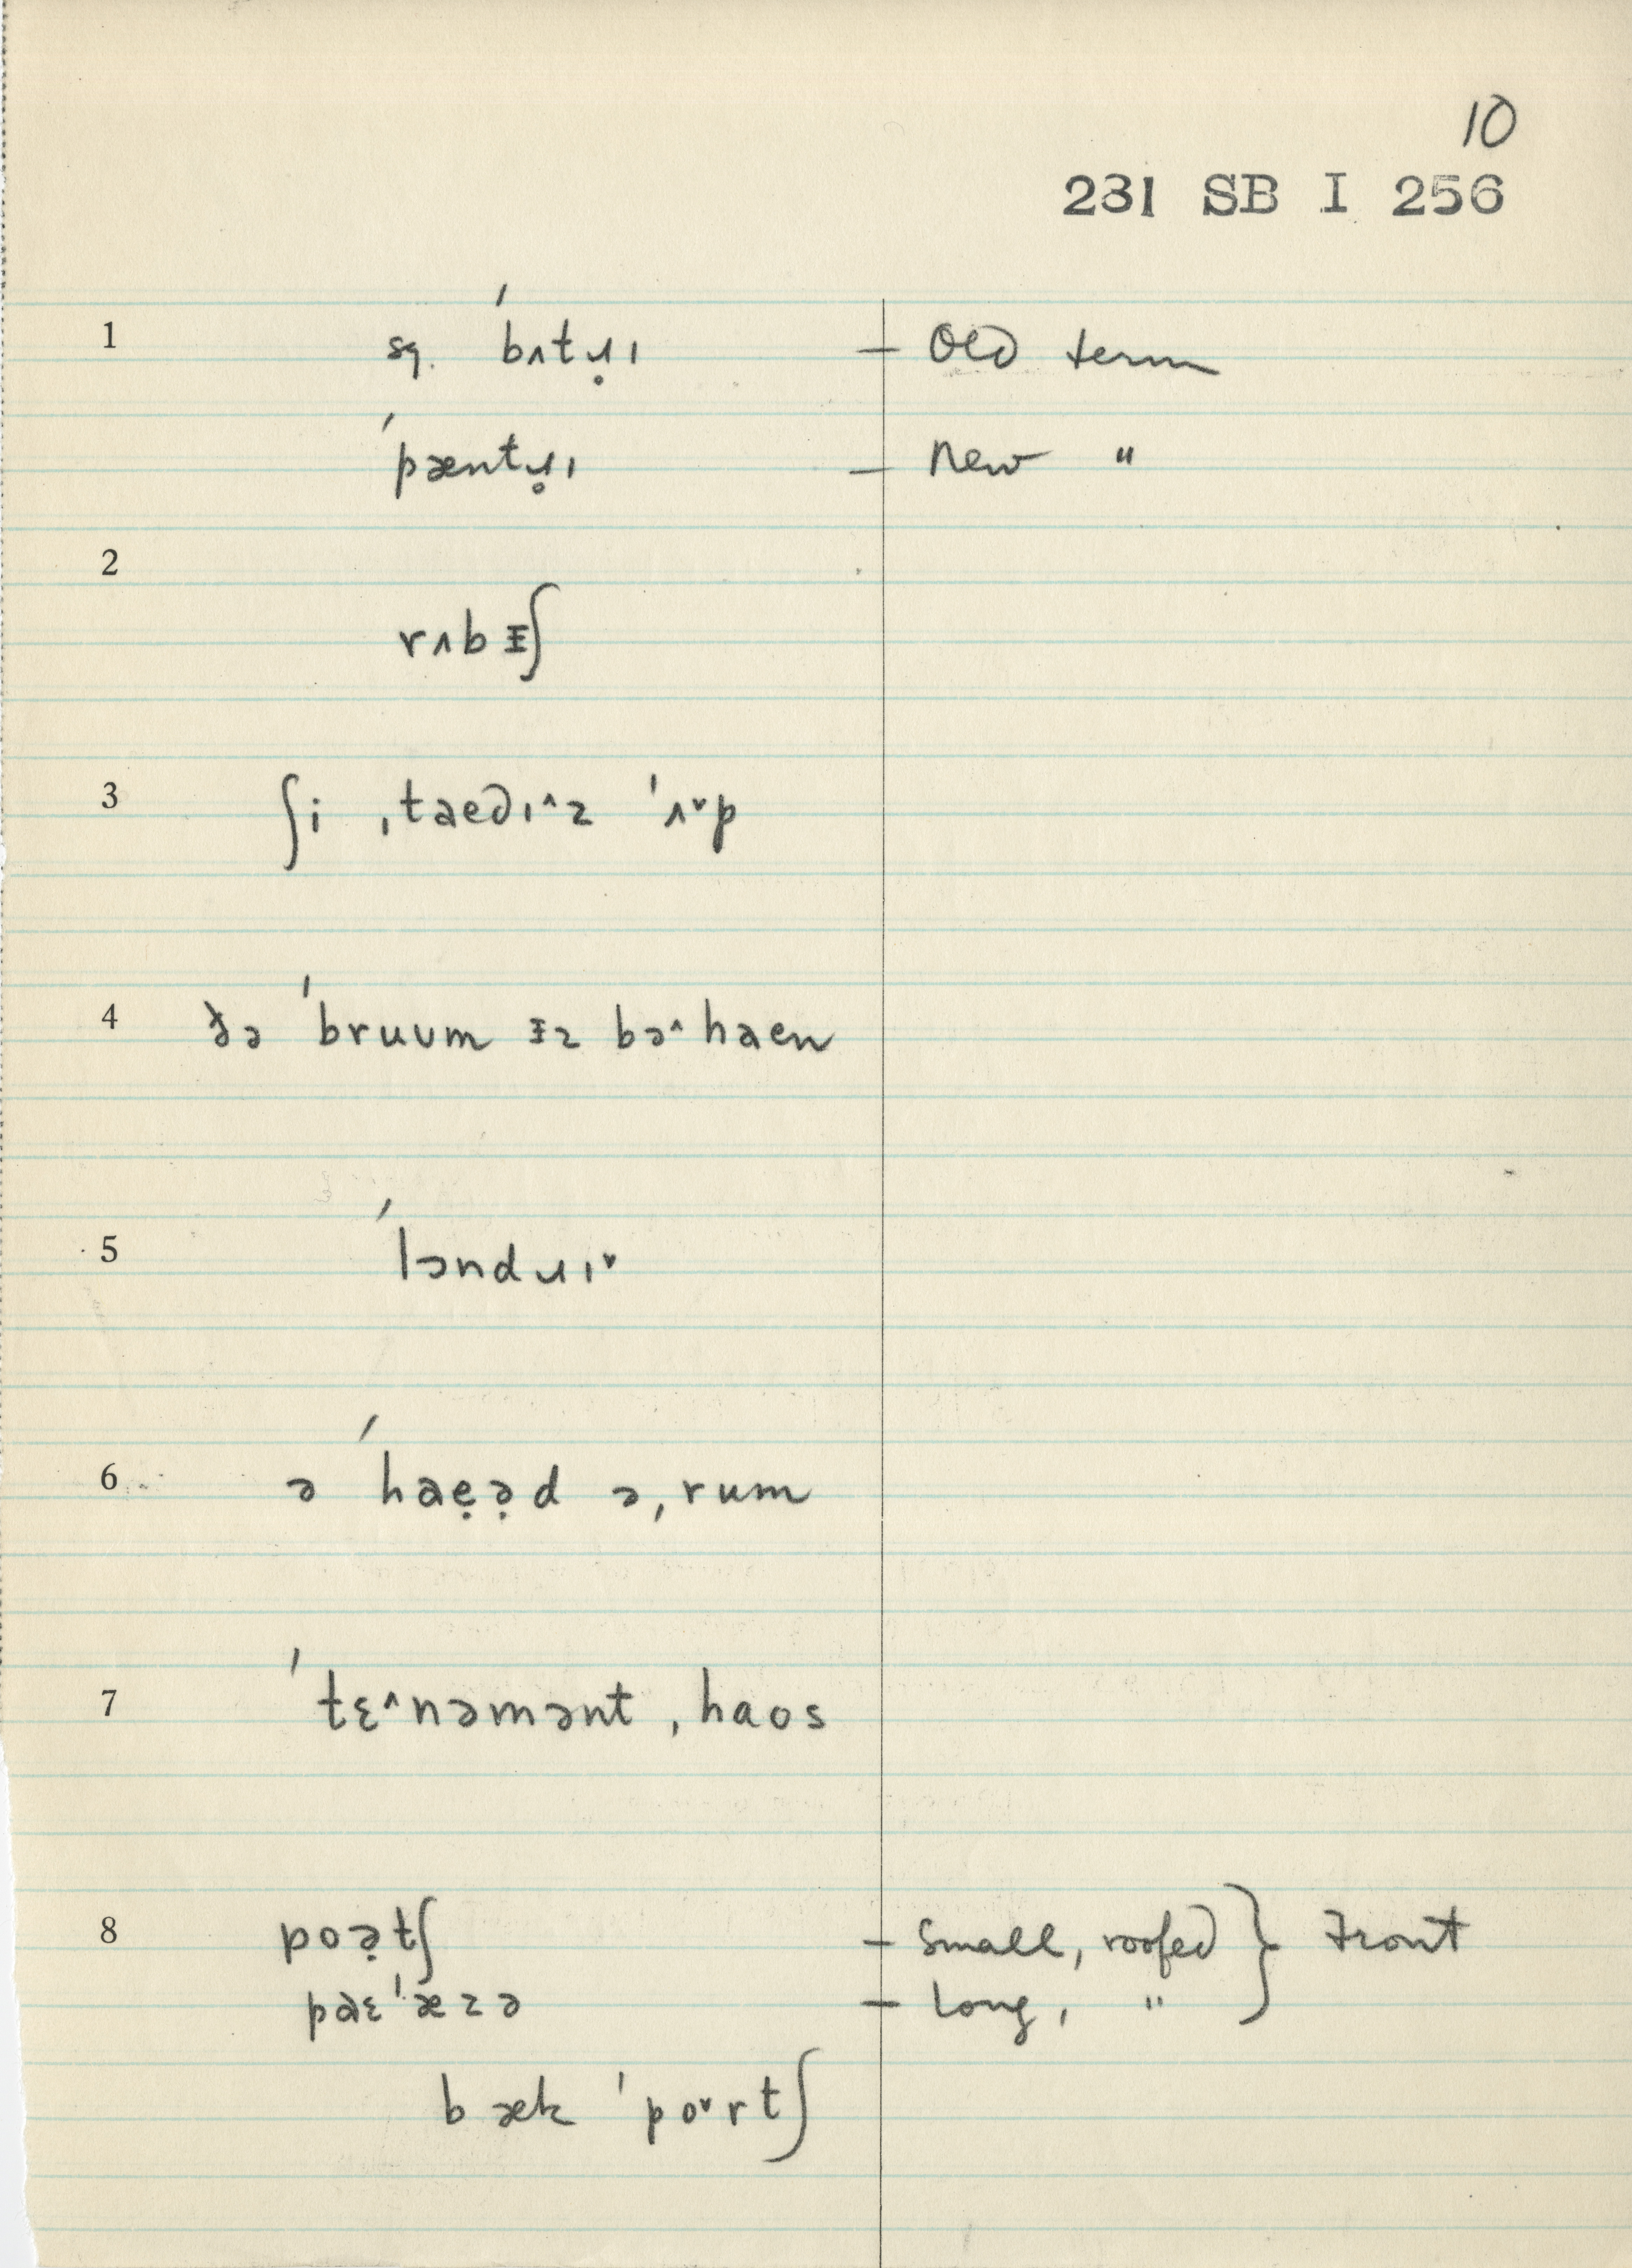 10
231 SB I 256
1 sq. ˈbʌtɹ̣ɪ – Old term
ˈpæntɹ̣ɪ – New "
2
rʌbᵻʃ
3 ʃi ˌtaeðɪ^z ˈʌˇp
4 ðə ˈbruᴜm ᵻz bə^haen
5 ˈlɔndɹɪˇ
6 ə ˈhaẹə̣d əˌrum
7 ˈtɛ^nəmənt ˌhaos
8 poə̣tʃ – Small, roofed } Front
paɛˈæzə – Long, "
bæk ˈpoˇrtʃ